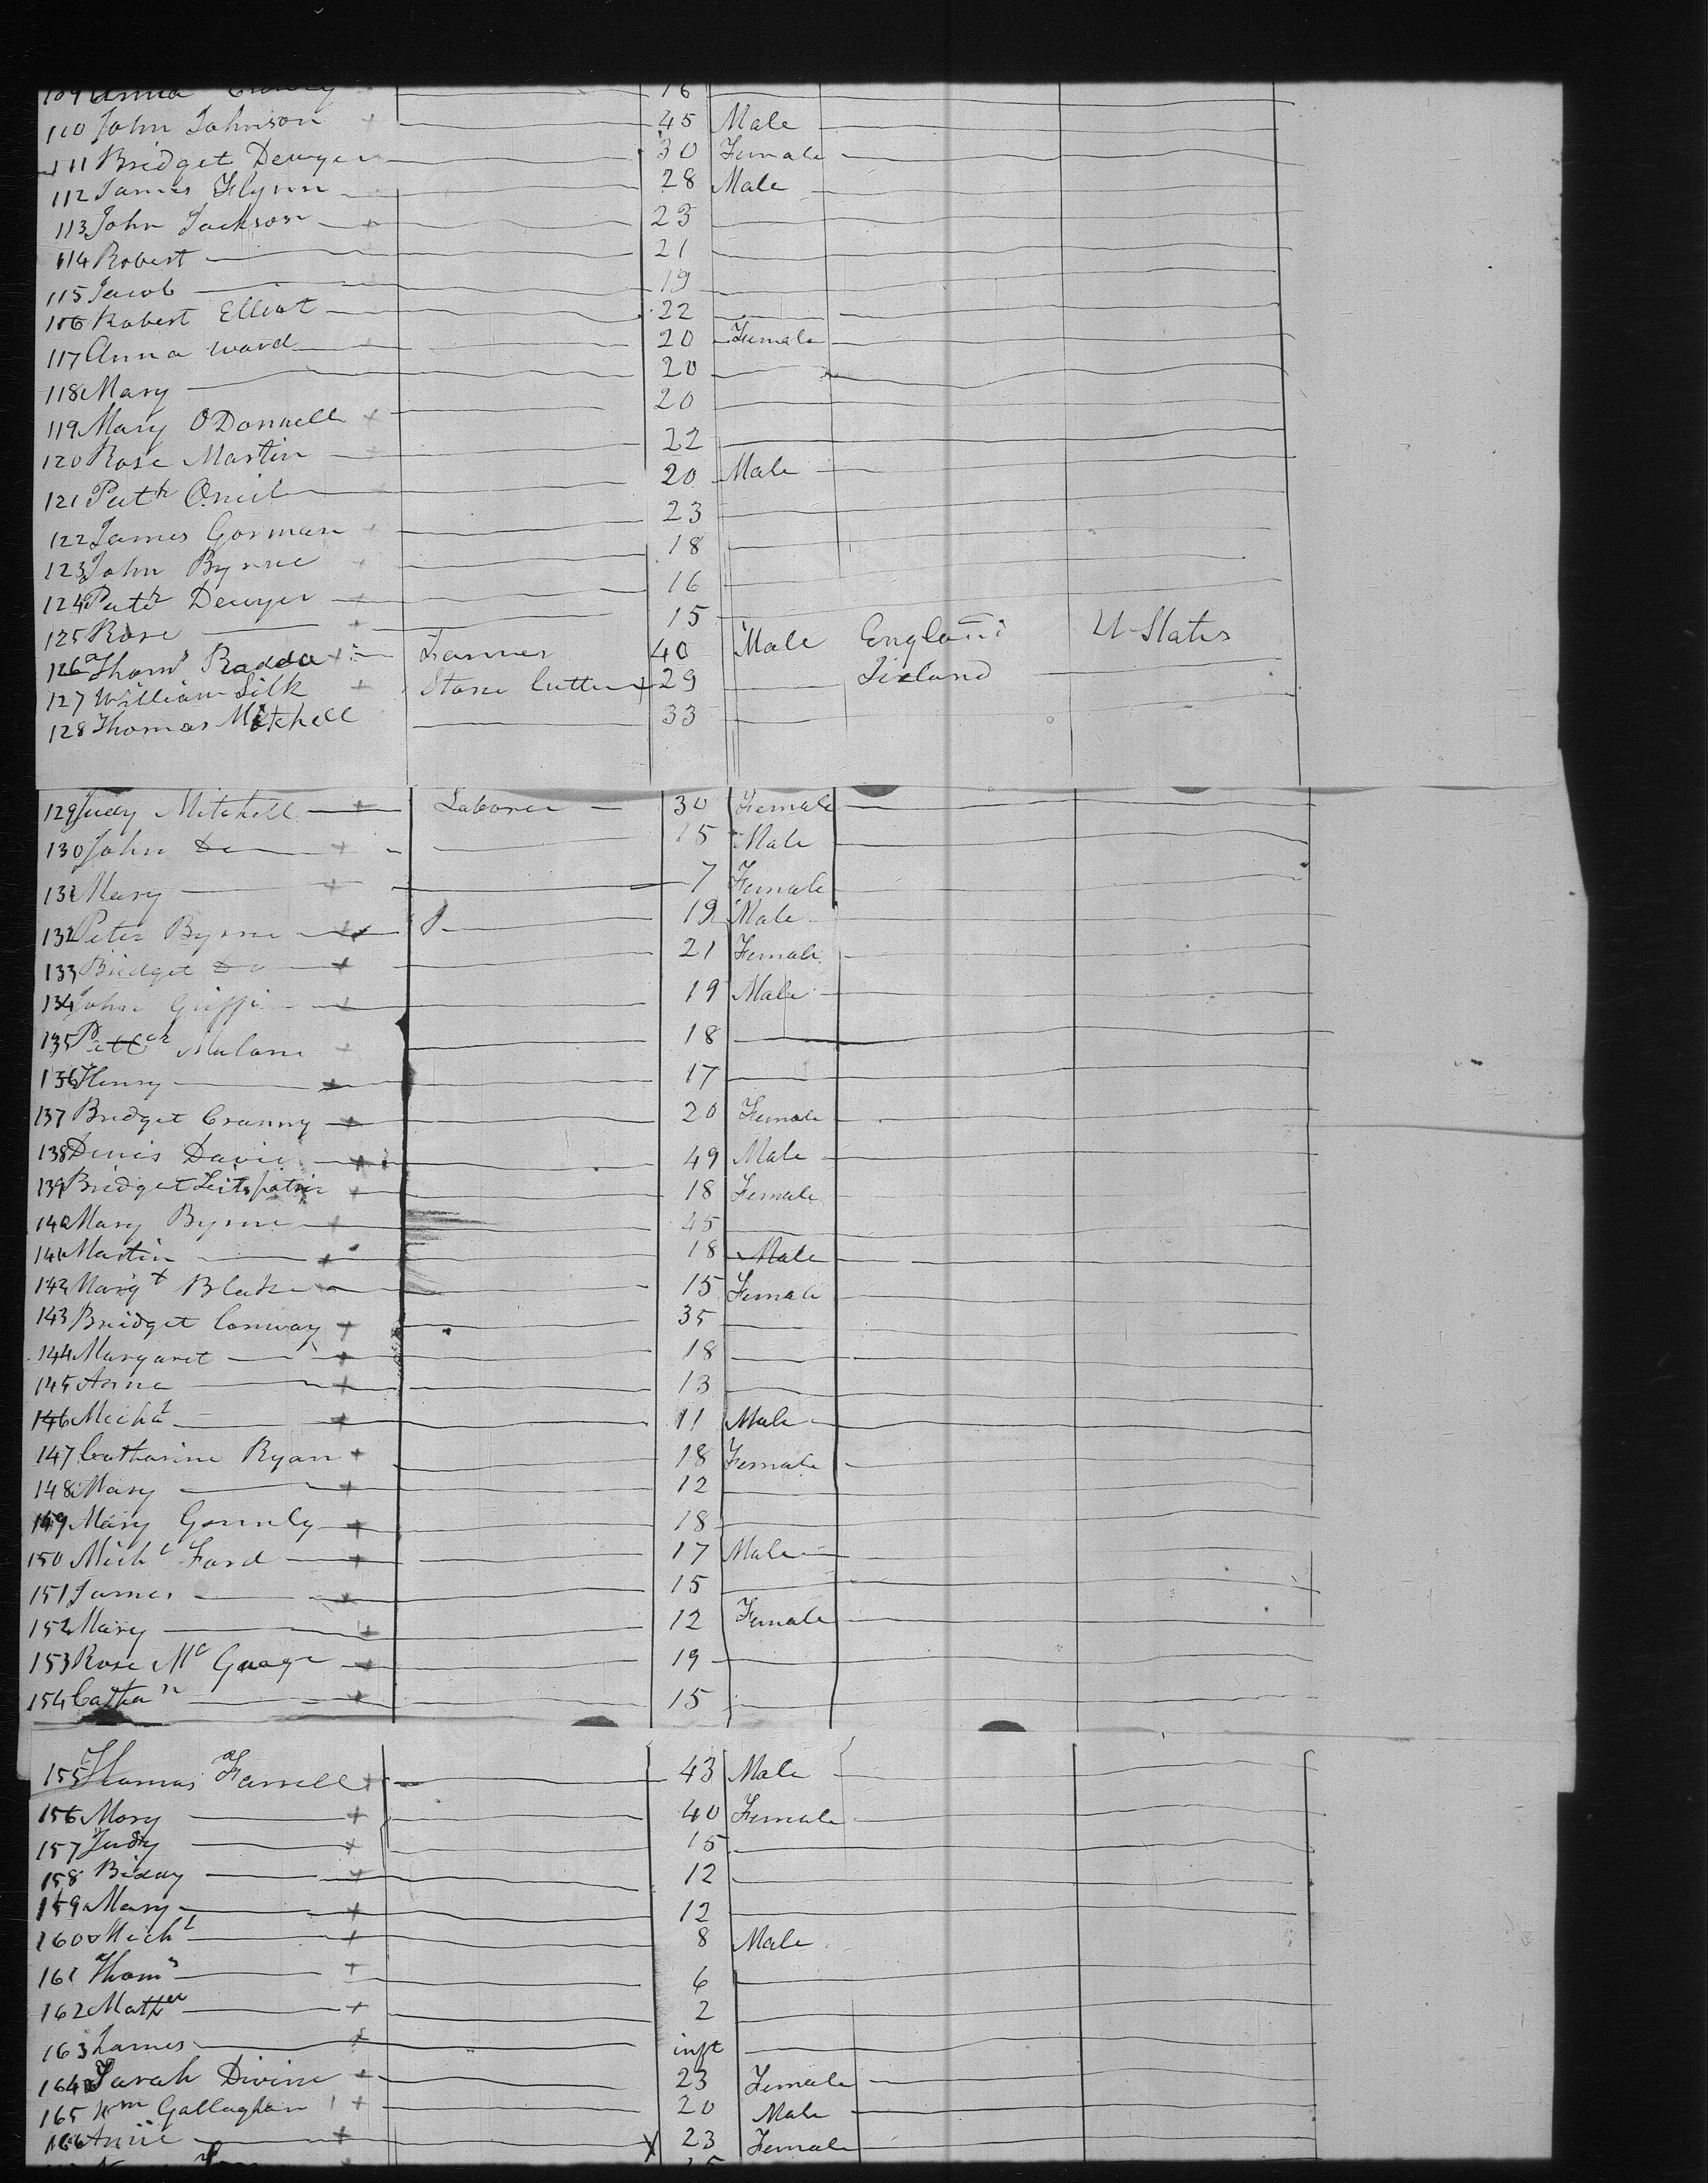 109 Anna 16
110 John Johnson 45 Male
111 Bridget Dewyer 30 Female
112 James Flynn 28 Male
113 John Jackson 23
114 Robert 21
115 Jacob 19
116 Robert Elliot 22
117 Anna Ward 20 Female
118 Mary 20
119 Mary O'Donnell 20
120 Rose Martin 22
121 Patk Oneil 20 Male
122 James Gorman 23
123 John Byrne 18
124 Patk Dewyer 16
125 Rose 15
126 Thoms Radda Farmer 40 Male England U States
127 William Silk Stone Cutter 29 Ireland
128 Thomas Mitchell 33
129 Judy Mitchell Laborer 30 Female
130 John Do 15 Male
131 Mary 7 Female
132 Peter Byrne 19 Male
133 Bridget Do 21 Female
134 John Griffin 19 Male
135 Malone 18
136 Henry 17
137 Bridget Cranny 20 Female
138 Denis Davis 49 Male
139 Bridget Feitspatric 18 Female
140 Mary Byrne 45
141 Martin 18 Male
142 Margt Blake 15 Female
143 Bridget Conway 35
144 Margaret 18
145 Anne 13
146 Michl 11 Male
147 Catharine Ryan 18 Female
148 Mary 12
149 Mary Gormly 18
150 Michl Ford 17 Male
151 James 15
152 Mary 12 Female
153 Rose Mc 19
154 Cathan 15
155 Thomas Farrell 43 Male
156 Mary 40 Female
157 Judy 15
158 Biddy 12
159 Mary 12
160 Michl 8 Male
161 Thoms 6
162 Mattw 2
163 James inft
164 Sarah Divine 23 Female
165 Wm Gallaghan 20 Male
166 Annie 23 Female